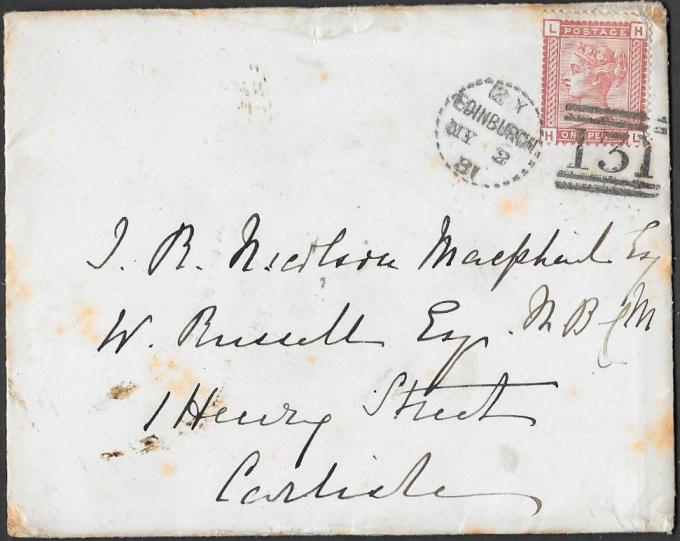 L POSTAGE H
H ONE PENNY L
131
EDINBURGH
2
81
J. R. Nicolson Macphail Esq
W. Russell Esq. M B C M
1 Henry Street
Carlisle